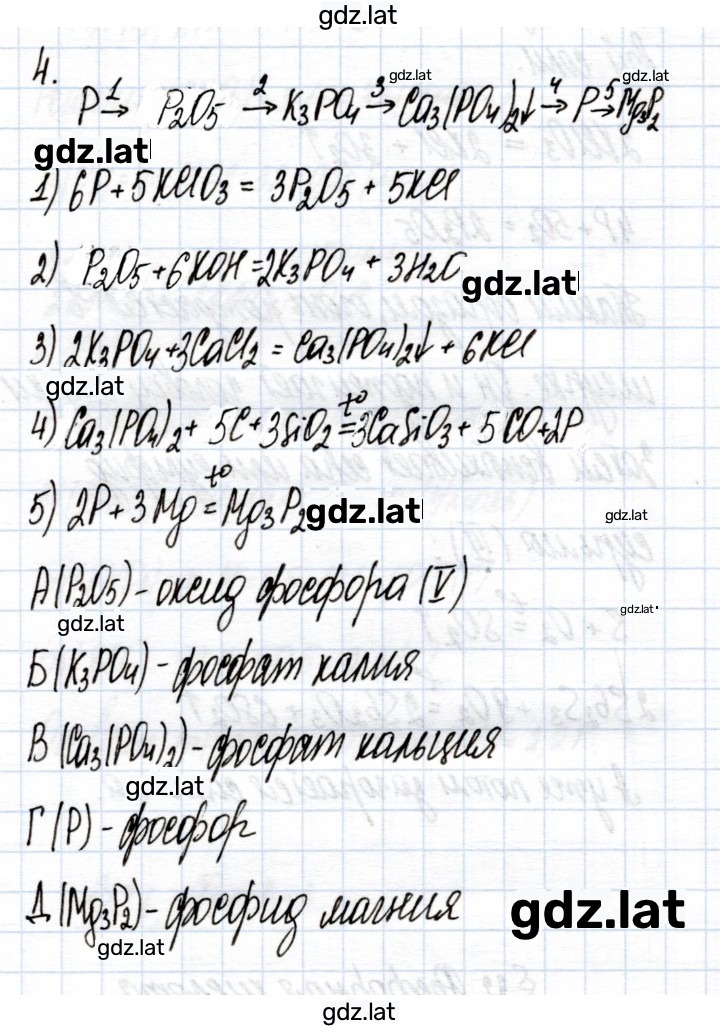 gdz.lat
4.
P →¹ P₂O₅ →² K₃PO₄ →³ Ca₃(PO₄)₂↓ →⁴ P →⁵ Mg₃P₂
gdz.lat gdz.lat
gdz.lat
1) 6P + 5KClO₃ = 3P₂O₅ + 5KCl
2) P₂O₅ + 6KOH = 2K₃PO₄ + 3H₂O
gdz.lat
3) 2K₃PO₄ + 3CaCl₂ = Ca₃(PO₄)₂↓ + 6KCl
gdz.lat
4) Ca₃(PO₄)₂ + 5C + 3SiO₂ =t° 3CaSiO₃ + 5CO + 2P
5) 2P + 3Mg =t° Mg₃P₂
gdz.lat gdz.lat
А (P₂O₅) - оксид фосфора (V)
gdz.lat gdz.lat
Б (K₃PO₄) - фосфат калия
В (Ca₃(PO₄)₂) - фосфат кальция
gdz.lat
Г (P) - фосфор
Д (Mg₃P₂) - фосфид магния
gdz.lat
gdz.lat
gdz.lat